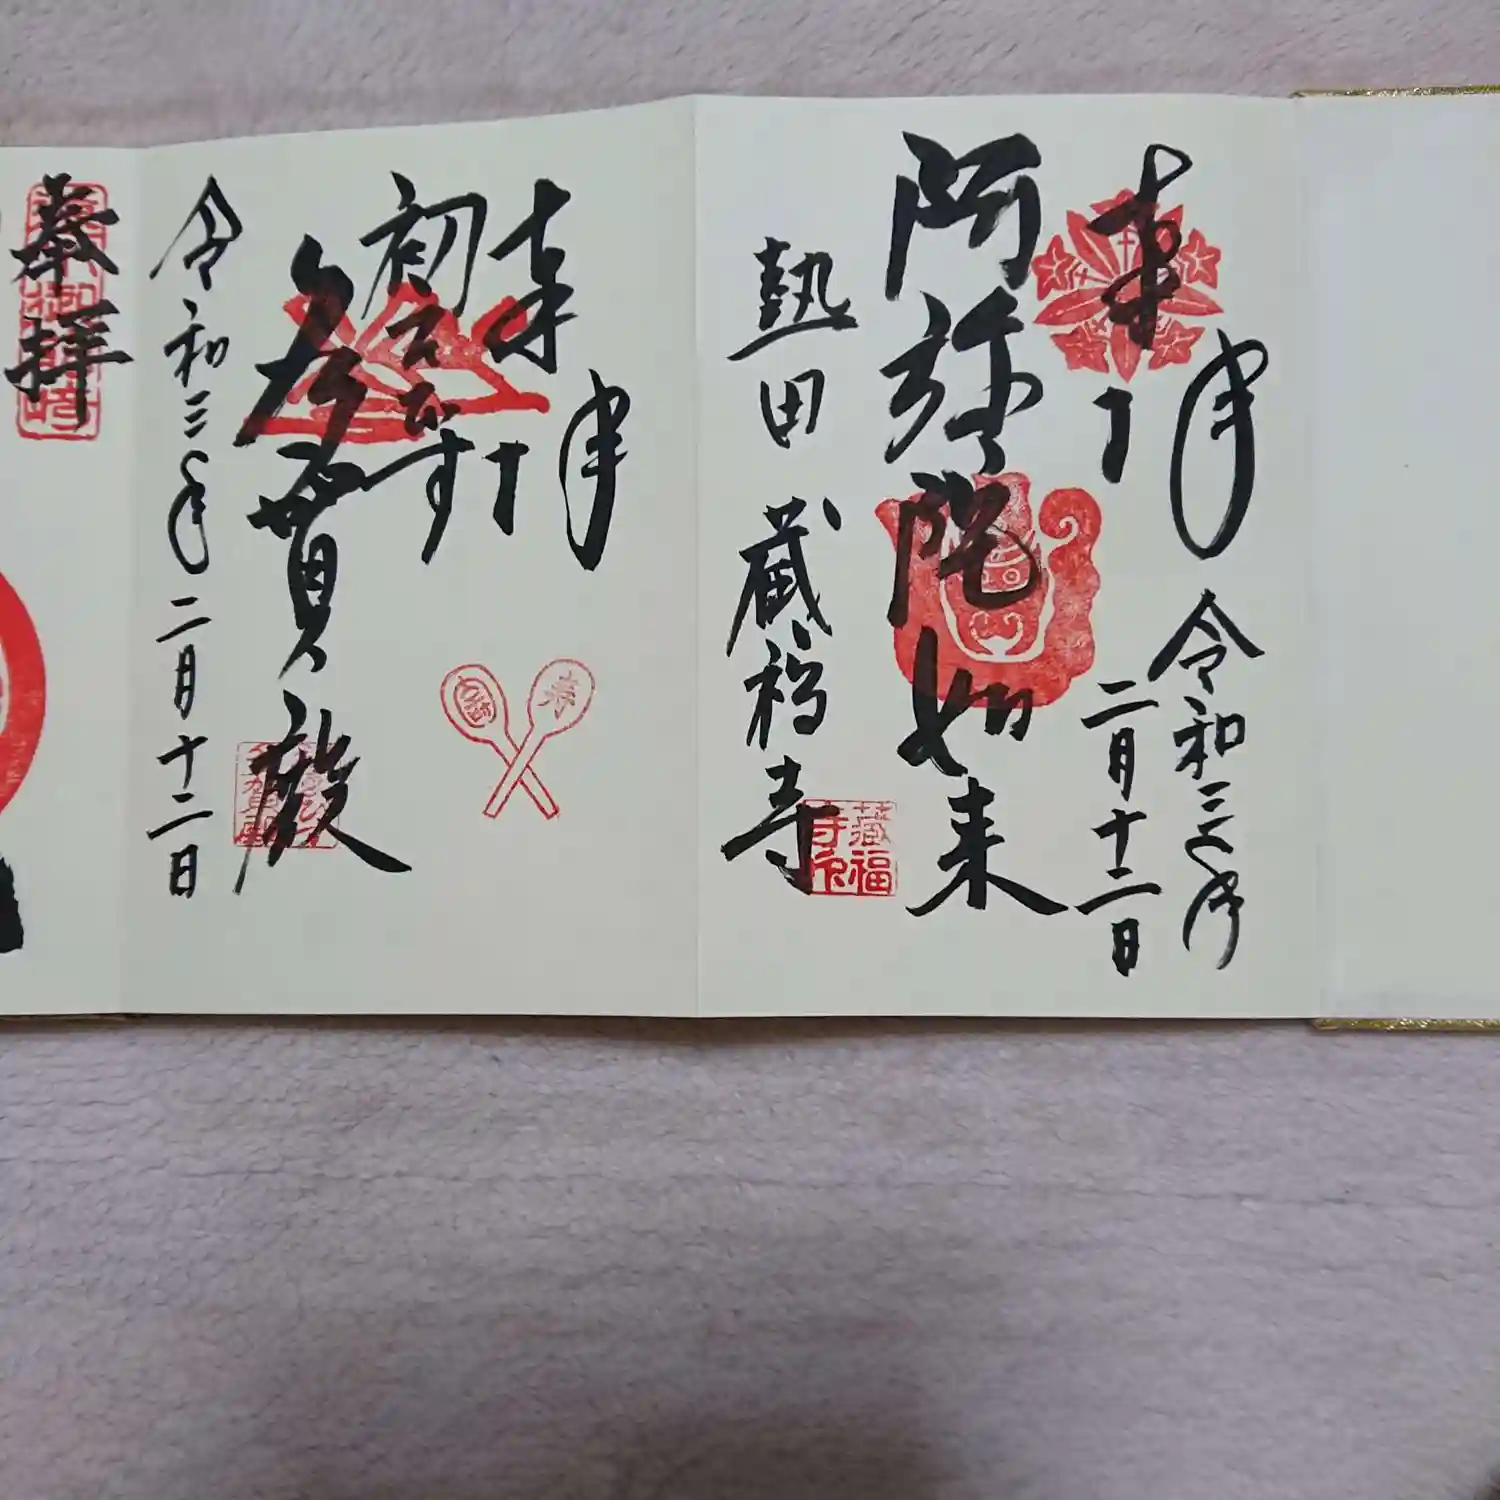 奉拝
令和三年
二月十二日
阿弥陀如来
熱田 蔵福寺
蔵福
寺印
奉拝
寿
初えびす
多賀殿
令和三年二月十二日
奉拝